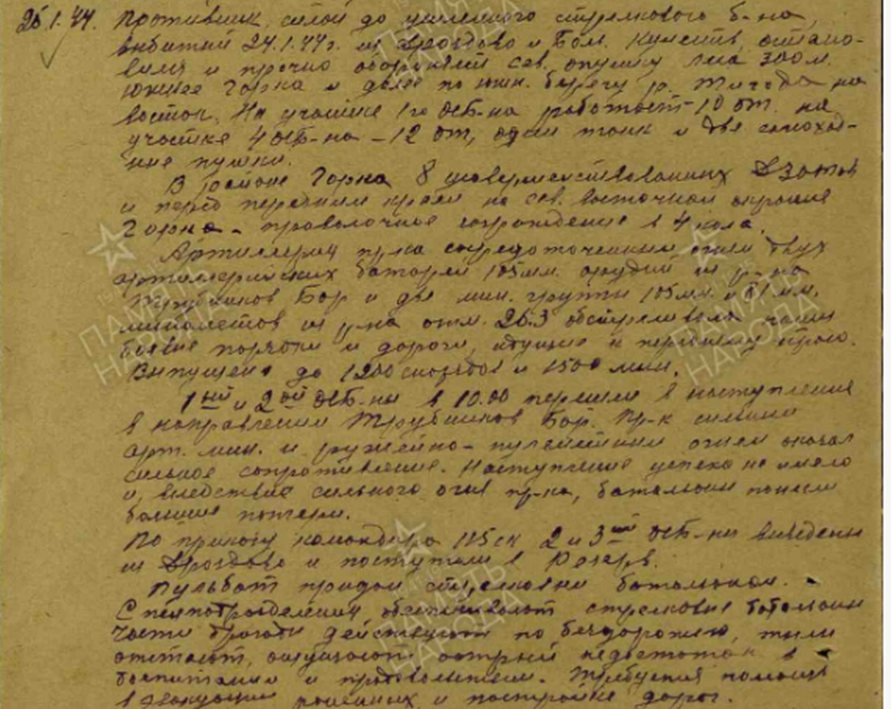 26.1.44. Противник силой до усиленного стрелкового б-на,
выбитый 24.1.44г. из Дроздово и Бол. Кунесть, остано-
вился и прочно обороняет сев. опушку леса 300 м.
южнее Горка и далее по южн. берегу р. Тигода на
восток. На участке 1го ОСБ-на работает 10 от. на
участке 4 ОСБ-на - 12 от, один танк и две самоход-
ные пушки.
В районе Горка 8 усовершенствованных ДЗОТов
и перед передним краем на сев. восточной окраине
Горка - проволочное заграждение в 4 кола.
Артиллерия пр-ка сосредоточенным огнем двух
артиллерийских батарей 105мм. орудий из р-на
Трубников Бор и две мин. группы 105мм. и 81мм.
минометов из р-на отм. 26.3 обстреливала наши
боевые порядки и дороги, идущие к переднему краю.
Выпущено до 1200 снарядов и 1500 мин.
1ый и 2ой ОСБ-ны в 10.00 перешли в наступление
в направлении Трубников Бор. Пр-к сильным
арт. мин. и ружейно-пулеметным огнем оказал
сильное сопротивление. Наступление успеха не имело
и, вследствие сильного огня пр-ка, батальоны понесли
большие потери.
По приказу командира 115 ск 2 и 3ий ОСБ-ны выведены
из Дроздово и поступили в Резерв.
Пульбат придан стрелковым батальонам.
Спецподразделения обеспечивают стрелковые батальоны
части бригады действуют по бездорожию, тылы
отстают, ощущают острый недостаток в
боепитании и продовольствии. Требуется помощь
в эвакуации раненных и постройке дорог.
ПАМЯТЬ
НАРОДА
ПАМЯТЬ
НАРОДА
ПАМЯТЬ
НАРОДА